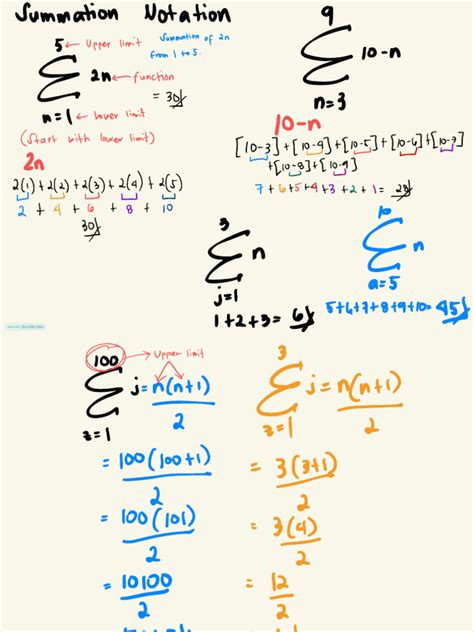 Summation Notation
5 ← Upper limit
Summation of 2n
from 1 to 5.
Σ 2n ← function
= 30
n = 1 ← lower limit
(start with lower limit)
2n
2(1) + 2(2) + 2(3) + 2(4) + 2(5)
2 + 4 + 6 + 8 + 10
30
9
Σ 10-n
n=3
10-n
[10-3] + [10-4] + [10-5] + [10-6] + [10-7]
+[10-8] + [10-9]
7 + 6 + 5 + 4 + 3 + 2 + 1 = 28
3
Σ n
j=1
1+2+3 = 6
10
Σ n
a=5
5+6+7+8+9+10= 45
100 → Upper limit
Σ j = n(n+1)
2
z=1
= 100(100+1)
2
= 100(101)
2
= 10100
2
3
Σ j = n(n+1)
2
z=1
= 3(3+1)
2
= 3(4)
2
= 12
2